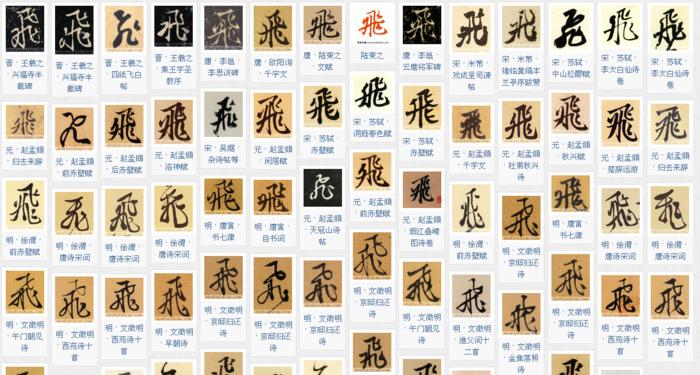 飛 飛 飛 飛 飛 飛 飛 飛 飛 飛 飛 飛 飛 飛
晋 · 王羲之 · 兴福寺半截碑
晋 · 王羲之 · 兴福寺半截碑
晋 · 王羲之 · 四纸飞白帖
晋 · 王羲之 · 集王字圣教序
唐 · 李邕 · 李思训碑
唐 · 欧阳询 · 千字文
唐 · 陆柬之 · 文赋
陆柬之
唐 · 李邕 · 云麾将军碑
宋 · 米芾 ·
宋 · 米芾 ·
宋 · 苏轼 · 中山松醪赋
宋 · 苏轼 · 李太白仙诗卷
宋 · 苏轼 · 李太白仙诗卷
飛 飛 飛 飛 飛 飛 飛 飛 飛 飛 飛 飛 飛 飛
元 · 赵孟頫 · 归去来辞
元 · 赵孟頫 · 前赤壁赋
元 · 赵孟頫 · 后赤壁赋
元 · 赵孟頫 · 洛神赋
宋 · 吴琚 · 杂诗帖等
元 · 赵孟頫 · 闲居赋
宋 · 苏轼 · 赤壁赋
宋 · 苏轼 · 洞庭春色赋
宋 · 苏轼 · 赤壁赋
元 · 赵孟頫 · 千字文
元 · 赵孟頫 · 杜甫秋兴诗
元 · 赵孟頫 · 秋兴赋
元 · 赵孟頫 ·
元 · 赵孟頫 · 归去来辞
飛 飛 飛 飛 飛 飛 飛 飛 飛 飛 飛 飛 飛 飛
明 · 徐渭 · 前赤壁赋
明 · 徐渭 · 唐诗宋词
明 · 徐渭 · 唐诗宋词
明 · 徐渭 · 唐诗宋词
明 · 唐寅 · 书七律
明 · 唐寅 · 自书词
元 · 赵孟頫 · 天冠山诗帖
元 · 赵孟頫 · 前赤壁赋
元 · 赵孟頫 · 烟江叠嶂图诗卷
明 · 徐渭 · 唐诗宋词
明 · 文徵明 · 京邸归还诗
明 · 唐寅 · 书七律
明 · 徐渭 · 唐诗宋词
明 · 徐渭 · 唐诗宋词
飛 飛 飛 飛 飛 飛 飛 飛 飛 飛 飛 飛 飛 飛
明 · 文徵明 · 午门朝见诗
明 · 文徵明 · 西苑诗十首
明 · 文徵明 · 西苑诗十首
明 · 文徵明 · 早朝诗
明 · 文徵明 · 京邸归还诗
明 · 文徵明 · 京邸归还诗
明 · 文徵明 · 京邸归还诗
明 · 文徵明 · 京邸归还诗
明 · 文徵明 · 午门朝见诗
明 · 文徵明 · 渔父词十二首
明 · 文徵明 · 金焦落照诗
明 · 文徵明 · 京邸归还诗
明 · 文徵明 · 西苑诗十首
明 · 文徵明 · 西苑诗十首